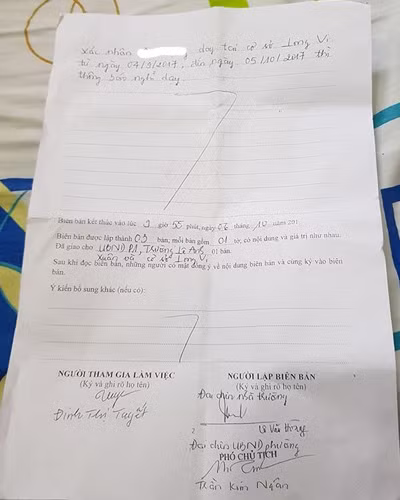 xác nhận dạy tại cơ sở Long Vi
từ ngày 04/9/2017, đến ngày 05/10/2017 thì
thông báo nghỉ dạy
Biên bản kết thúc vào lúc 9 giờ 55 phút, ngày 06 tháng 10 năm 201
Biên bản được lập thành 03 bản, mỗi bản gồm 01 tờ, có nội dung và giá trị như nhau.
Đã giao cho UBND P1, Trường Lê Anh 01 bản.
Xuân và cơ sở Long Vi
Sau khi đọc biên bản, những người có mặt đồng ý về nội dung biên bản và cùng ký vào biên
bản.
Ý kiến bổ sung khác (nếu có):
NGƯỜI THAM GIA LÀM VIỆC
(Ký và ghi rõ họ tên)
Đinh Thị Tuyết
NGƯỜI LẬP BIÊN BẢN
(Ký và ghi rõ họ tên)
Đại diện nhà trường
2
Đại diện UBND phường
PHÓ CHỦ TỊCH
Trần Kim Ngân